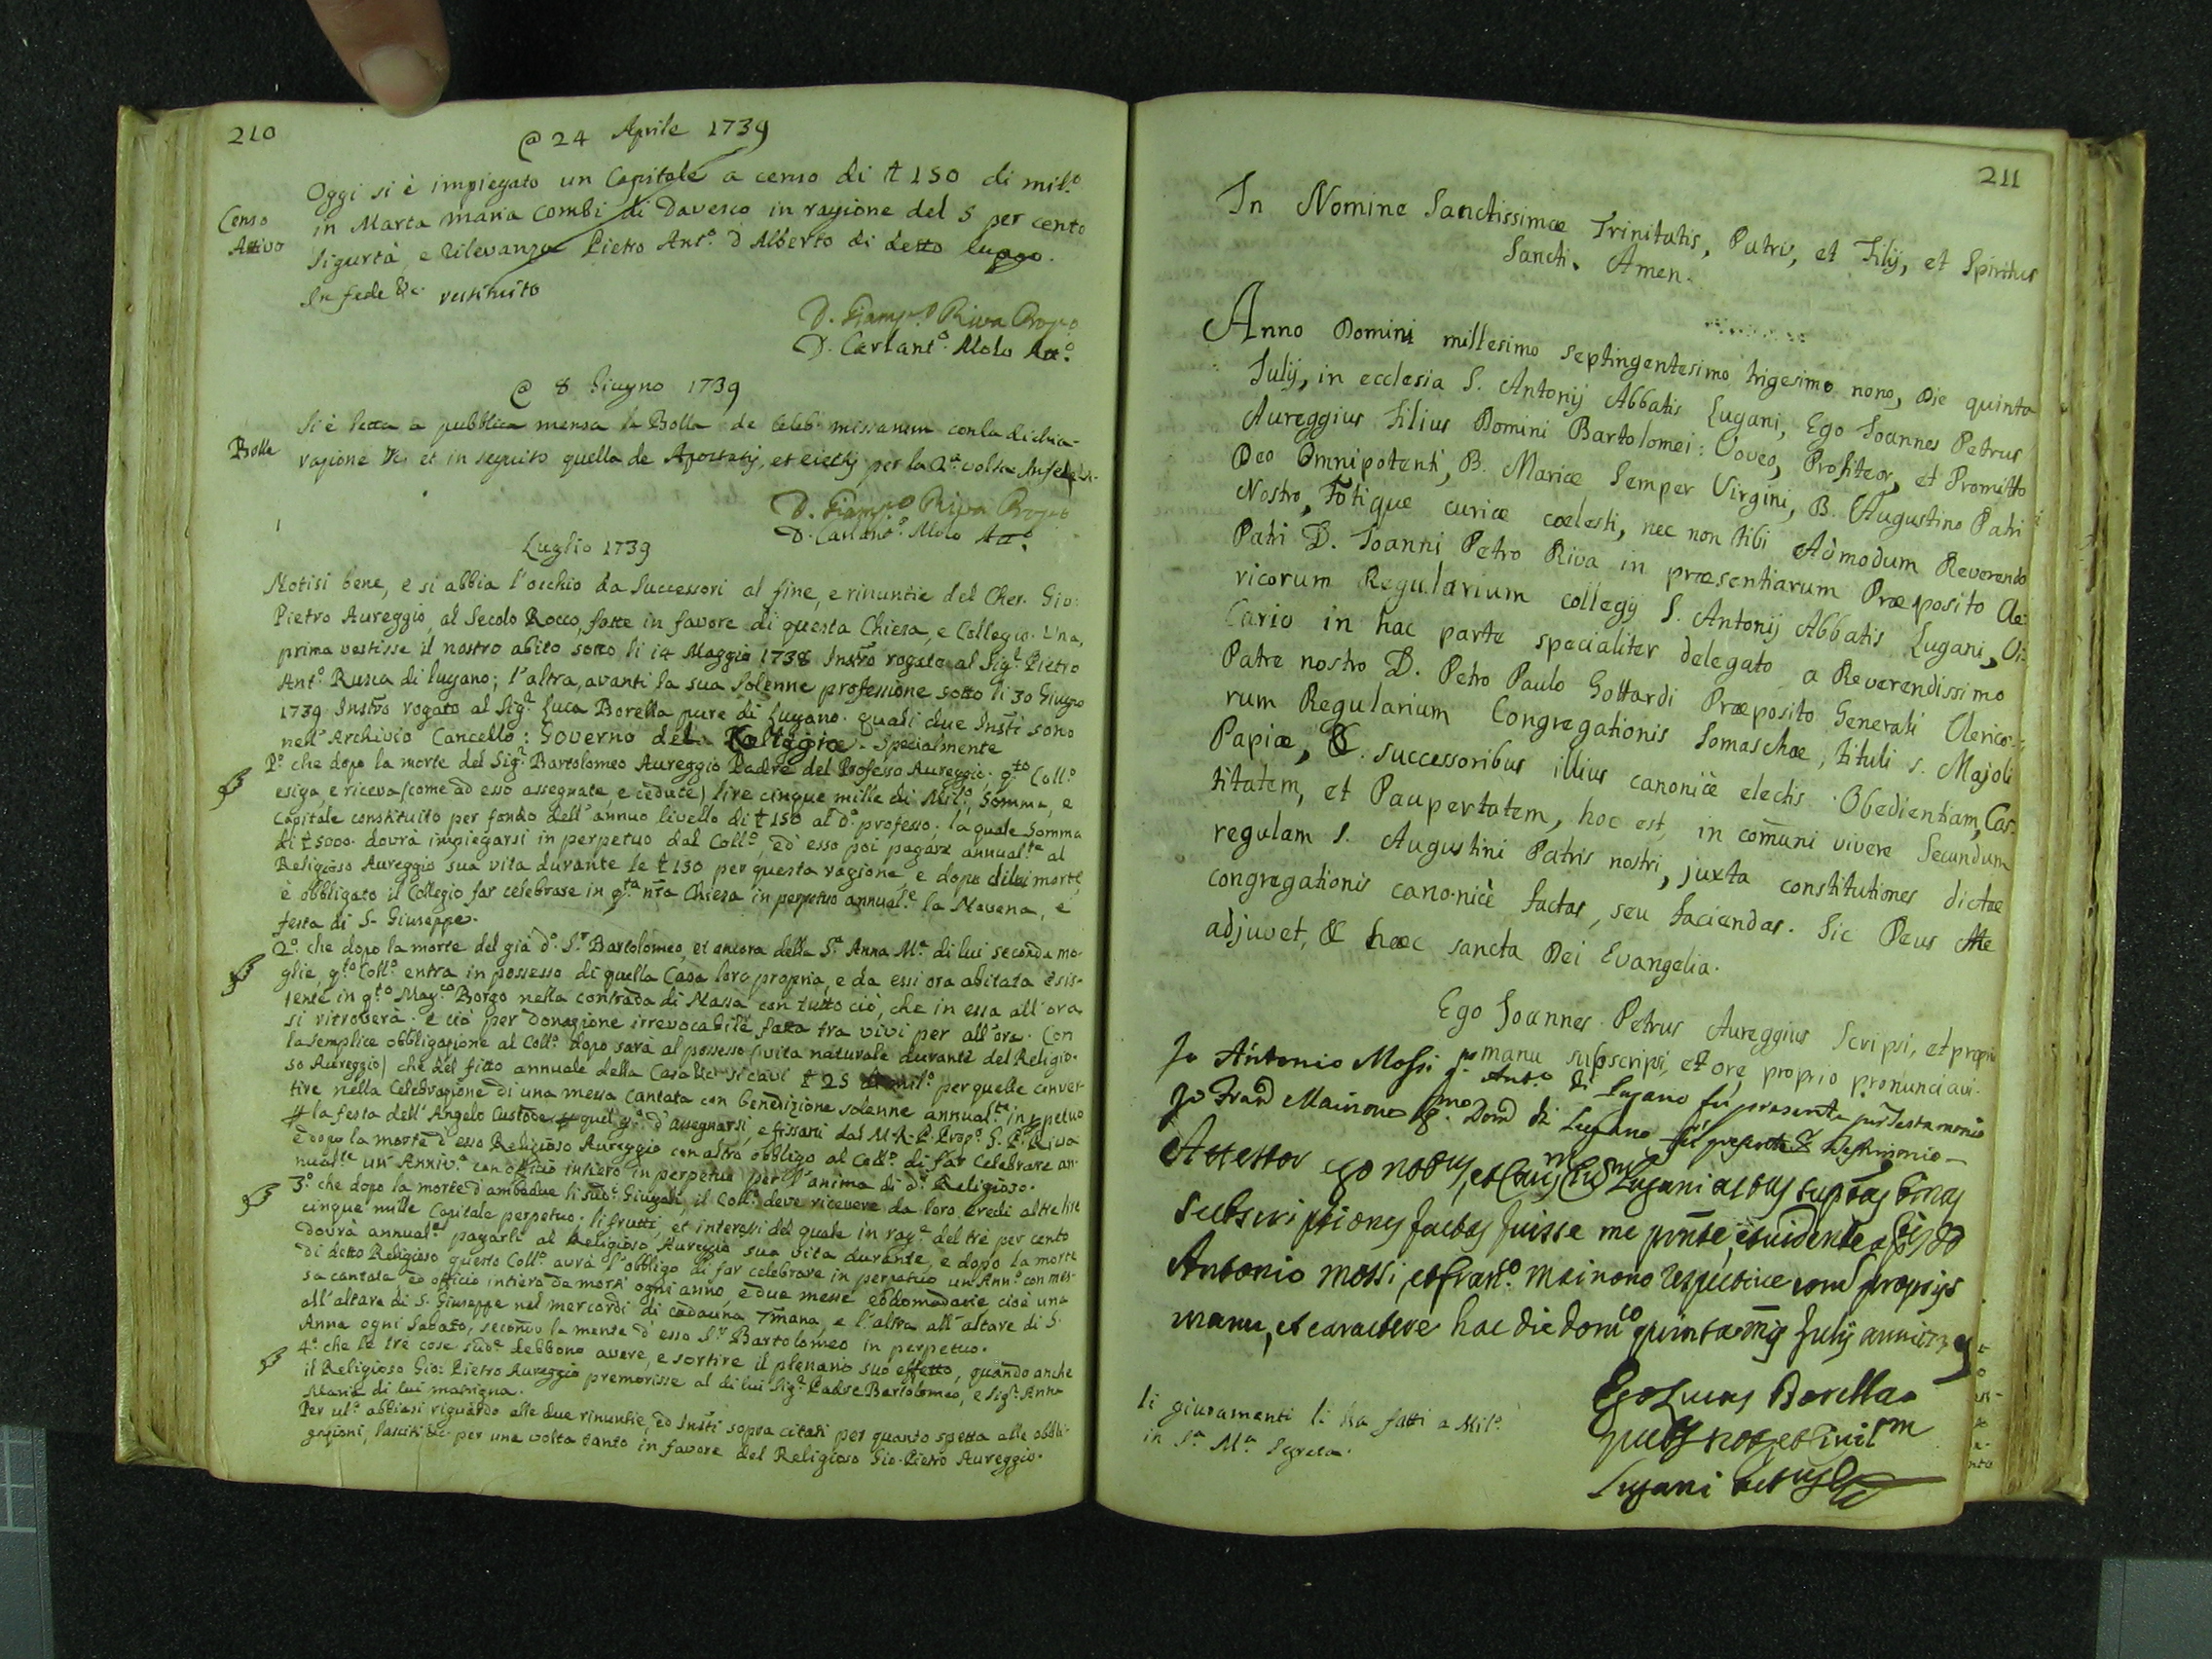 210
@ 24 Aprile 1739
Oggi si è impiegato un Capitale a censo di ₶ 150 di mil.o
Censo
Attivo
in Marta maria Combi di Davesco in ragione del 5 per cento
Sigurtà, e rilevanza Pietro Ant.o d'Alberto di detto luogo.
In fede &c. restituito
D. Giamp.o Riva Prop.o
D. Carlant.o Molo Att.o
@ 8 Giugno 1739
Bolla
Si è letta a pubblica mensa la Bolla de celeb. missarum con la dichia-
razione &c, et in seguito quella de Apostatis, et eiectis per la 2.a volta. In fede &c.
D. Giamp.o Riva Prop.o
D. Carlant.o Molo Att.o
Luglio 1739
Notisi bene, e si abbia l'occhio da Successori al fine, e rinuntie del Cher. Gio:
Pietro Aureggio, al Secolo Rocco, fatte in favore di questa Chiesa, e Collegio. L'una,
prima vestisse il nostro abito sotto li 14 Maggio 1738 Instro rogato al Sig.r Pietro
Ant.o Rusca di lugano; l'altra, avanti la sua solenne professione sotto li 30 Giugno
1739 Instro rogato al Sig.r Luca Borella pure di Lugano. quali due Insti sono
nell'Archivio Cancello: Governo del Collegio. Specialmente
P.o che dopo la morte del Sig.r Bartolomeo Aureggio Padre del Professo Aureggio. q.to Coll.o
esiga, e riceva (come ad esso assegnate, e cedute) lire cinque mille di Mil.o, Somma, e
Capitale constituito per fondo dell'annuo livello di ₶ 150 al d.o professo; la quale Somma
di ₶ 5000. dovrà impiegarsi in perpetuo dal Coll.o, ed esso poi pagare annual.te al
Religioso Aureggio sua vita durante le ₶ 150 per questa ragione, e dopo di lui morte,
è obbligato il Collegio far celebrare in q.ta nra Chiesa in perpetuo annual.e la Novena, e
festa di S. Giuseppe.
2.o che dopo la morte del già d.o S.r Bartolomeo, et ancora della S.a Anna M.a di lui seconda mo-
glie, q.to Coll.o entra in possesso di quella Casa loro propria, e da essi ora abitata esis-
tente in q.to Mag.co Borgo nella contrada di Nassa con tutto ciò, che in essa all'ora
si ritroverà. e ciò per donazione irrevocabile fatta tra vivi per all'ora. Con
la semplice obbligazione al Coll.o dopo sarà al possesso (vita naturale durante del Religio-
so Aureggio) che del fitto annuale della Casa si cavi ₶ 25 di mil.o per quelle conver-
tire nella Celebrazione di una messa cantata con benedizione solenne annual.te in ppetuo
# la festa dell'Angelo Custode # d'assegnarsi, e fissarsi dal M.R.P. Prop.o G. P. Riva
e dopo la morte d'esso Religioso Aureggio con altro obbligo al Coll.o di far Celebrare an-
nual.te un Anniv.o con officio intiero in perpetuo per l'anima di d.o Religioso.
3.o che dopo la morte d'ambedue li sud.i Giugali, il Coll.o deve ricevere da loro eredi altre lire
cinque mille Capitale perpetuo; li frutti, et interessi del quale in rag.e del trè per cento
dovrà annual.e pagarli al Religioso Aureggio sua vita durante, e dopo la morte
di detto Religioso questo Coll.o avrà l'obbligo di far celebrare in perpetuo un Ann.o con mes-
sa cantata ed officio intiero da morti ogni anno, e due messe eddomadarie, cioè una
all'altare di S. Giuseppe nel mercordì di cadauna 7mana, e l'altra all'altare di S.
Anna ogni Sabato, secondo la mente d'esso S.r Bartolomeo in perpetuo.
4.o che le tre cose sud.e debbono avere, e sortire il plenario suo effetto, quando anche
il Religioso Gio: Pietro Aureggio premorisse al di lui Sig.r Padre Bartolomeo, e Sig.ra Anna
Maria di lui matrigna.
Per ul.o abbiasi riguardo alle due rinuntie, ed Insti sopra citati per quanto spetta alle obbli-
gazioni, lasciti &c. per una volta tanto in favore del Religioso Gio. Pietro Aureggio.
211
In Nomine Sanctissimæ Trinitatis, Patris, et Filij, et Spiritus
Sancti. Amen.
Anno Domini millesimo septingentesimo trigesimo nono, Die quinta
Julij, in ecclesia S. Antonij Abbatis Lugani, Ego Joannes Petrus
Aureggius Filius Domini Bartolomei: Voveo, Profiteor, et Promitto
Deo Omnipotenti, B. Mariæ Semper Virgini, B. Augustino Patri
Nostro, Totique curiæ cœlesti, nec non tibi Admodum Reverendo
Patri D. Joanni Petro Riva in præsentiarum Præposito Cle:
ricorum Regularium collegij S. Antonij Abbatis Lugani, Vi:
cario in hac parte specialiter delegato a Reverendissimo
Patre nostro D. Petro Paulo Gottardi Præposito Generali Clerico:
rum Regularium Congregationis Somaschæ, tituli S. Majoli
Papiæ, & successoribus illius canonicè electis Obedientiam, Cas:
titatem, et Paupertatem, hoc est, in comuni vivere Secundum
regulam S. Augustini Patris nostri, juxta constitutiones dictæ
congregationis canonicè factas, seu faciendas. Sic Deus Me
adjuvet, & hæc sancta Dei Evangelia.
Ego Joannes Petrus Aureggius Scripsi, et propria
manu subscripsi, et ore proprio pronunciavi.
Jo Antonio Mossi Ant.o di Lugano fui presente per testamonio
Jo Mainone q. Dom di Lugano fui presente testimonio
Attestor ego Lugani binas
Subscriptiones factas fuisse me pnte, et vidente a
Antonio Mossi, et Fran.o Mainono respective eorum proprijs
manu, et caractere hac die quinta mis Julij anni 1739
Ego Lucas Borella
Lugani
li giuramenti li ha fatti a Mil.o
in S.a M.a Segreta.